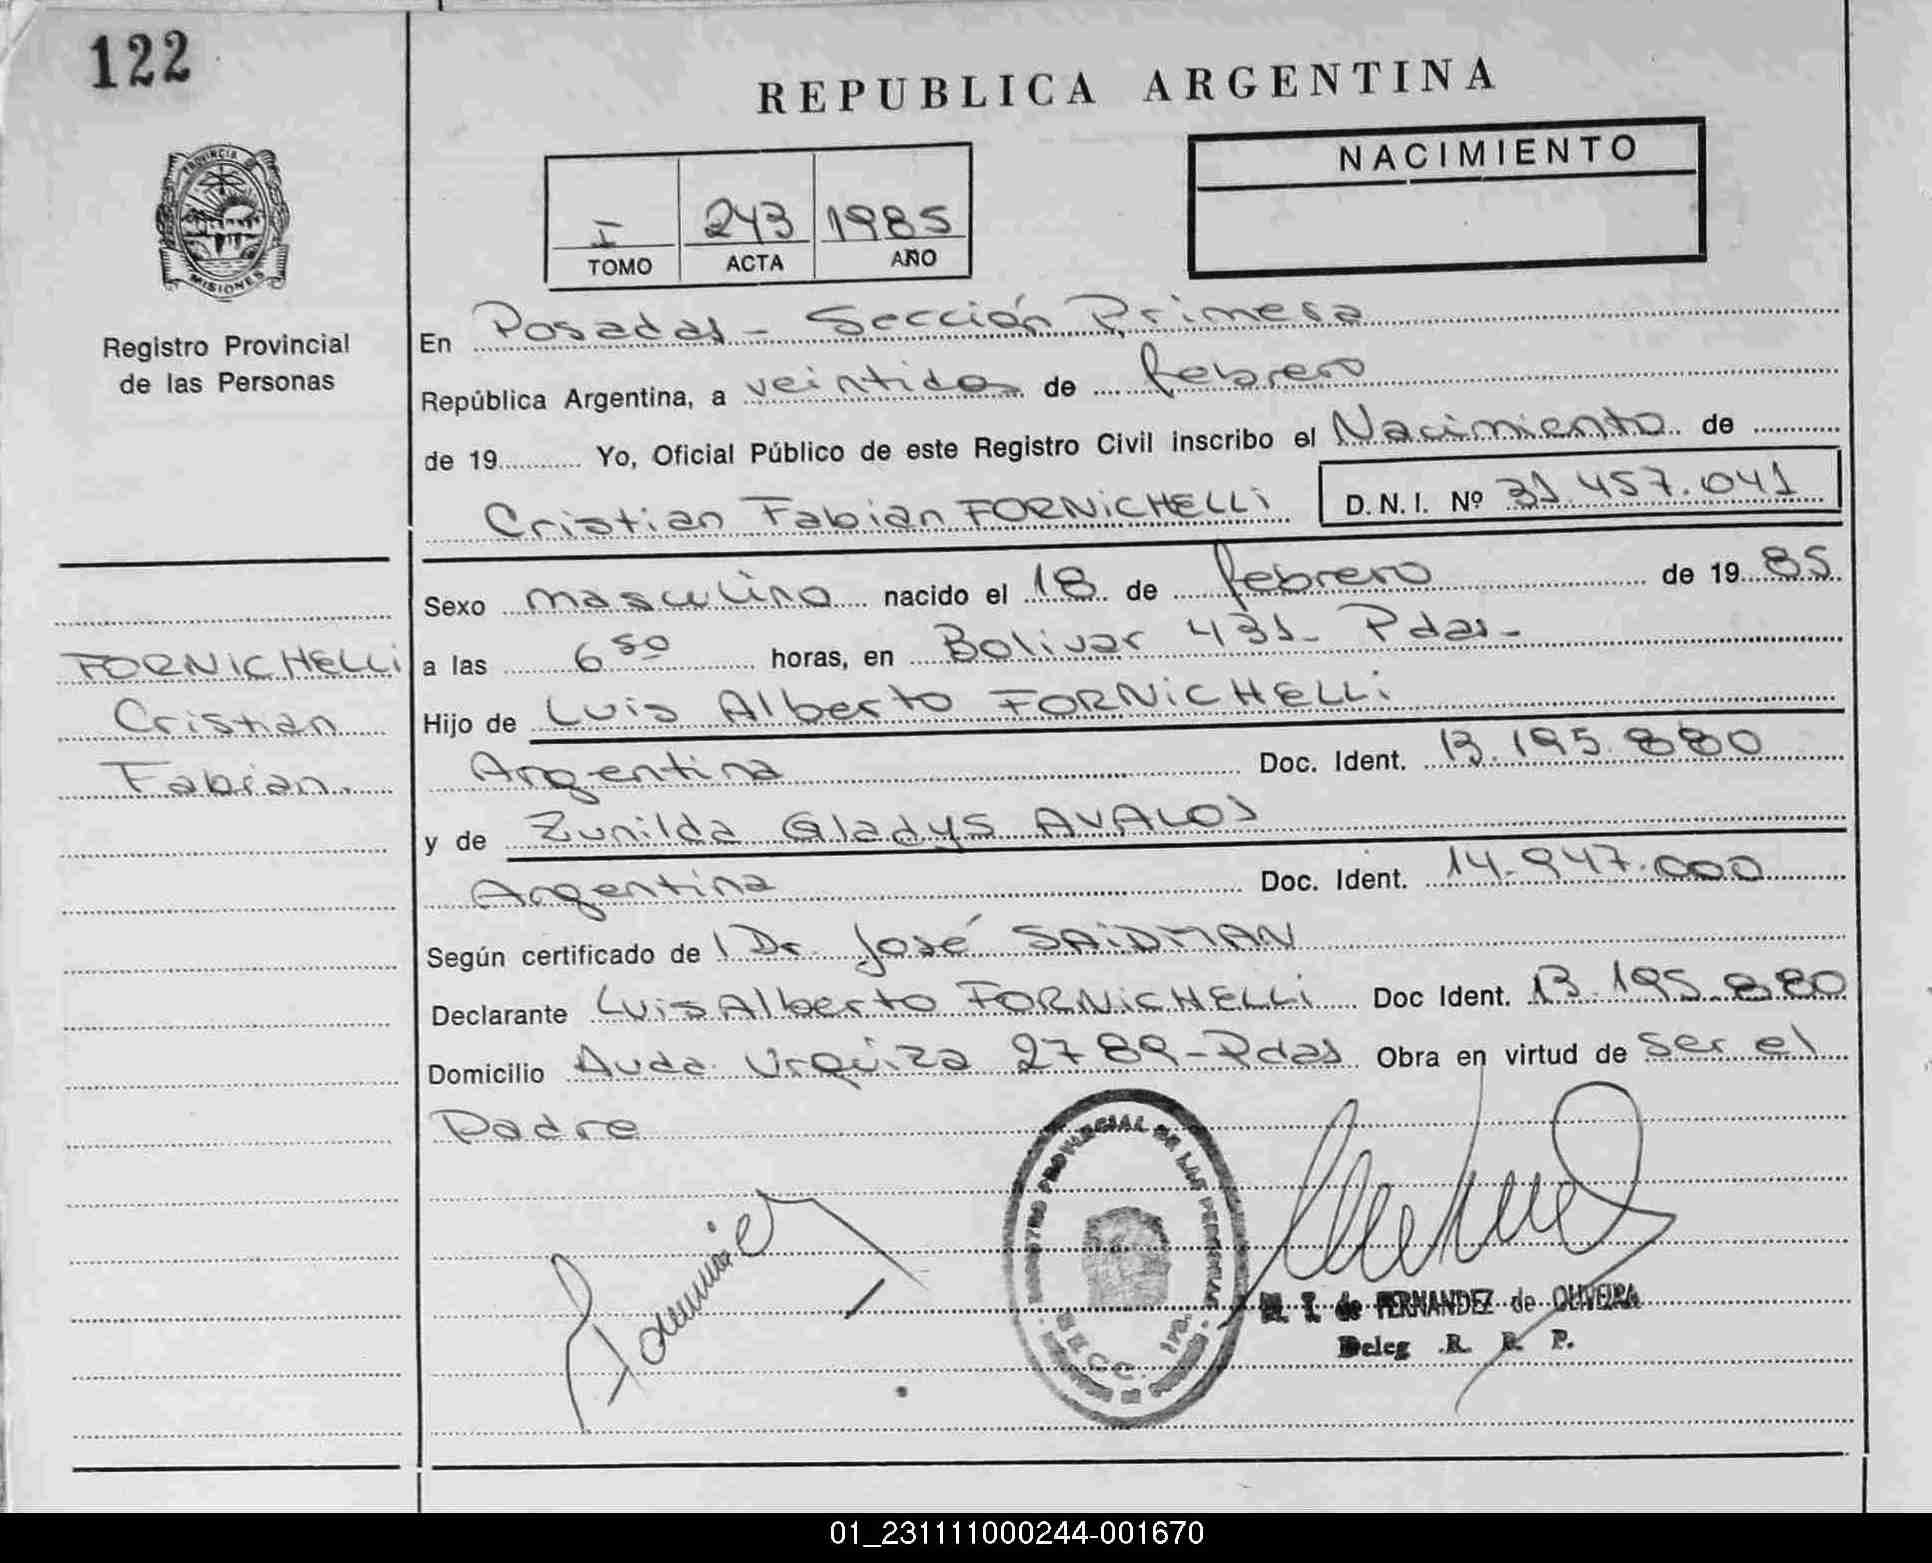 122
REPUBLICA ARGENTINA
NACIMIENTO
PROVINCIA DE
MISIONES
I 243 1985
TOMO ACTA AÑO
Registro Provincial
de las Personas
En Posadas - Sección Primera
República Argentina, a veintidos de febrero
de 19 Yo, Oficial Público de este Registro Civil inscribo el Nacimiento de
Cristian Fabian FORNiCHELLi D. N. I. Nº 31.457.041
Sexo masculino nacido el 18 de febrero de 19 85
a las 6 50 horas, en Bolivar 431- Pdas-
Hijo de Luis Alberto FORNiCHELLi
Argentina Doc. Ident. 13.195.880
y de Zunilda Gladys AVALOS
Argentina Doc. Ident. 14.947.000
Según certificado de Dr. José SAiDMAN
Declarante Luis Alberto FORNiCHELLi Doc Ident. 13.195.880
Domicilio Avda. Urquiza 2789-Pdas Obra en virtud de ser el
Padre
FORNICHELLi
Cristian
Fabian.
REGISTRO PROVINCIAL DE LAS PERSONAS
SECC. 1ra.
M. T. de FERNANDEZ de OLIVEIRA
Deleg R. P.
01_231111000244-001670